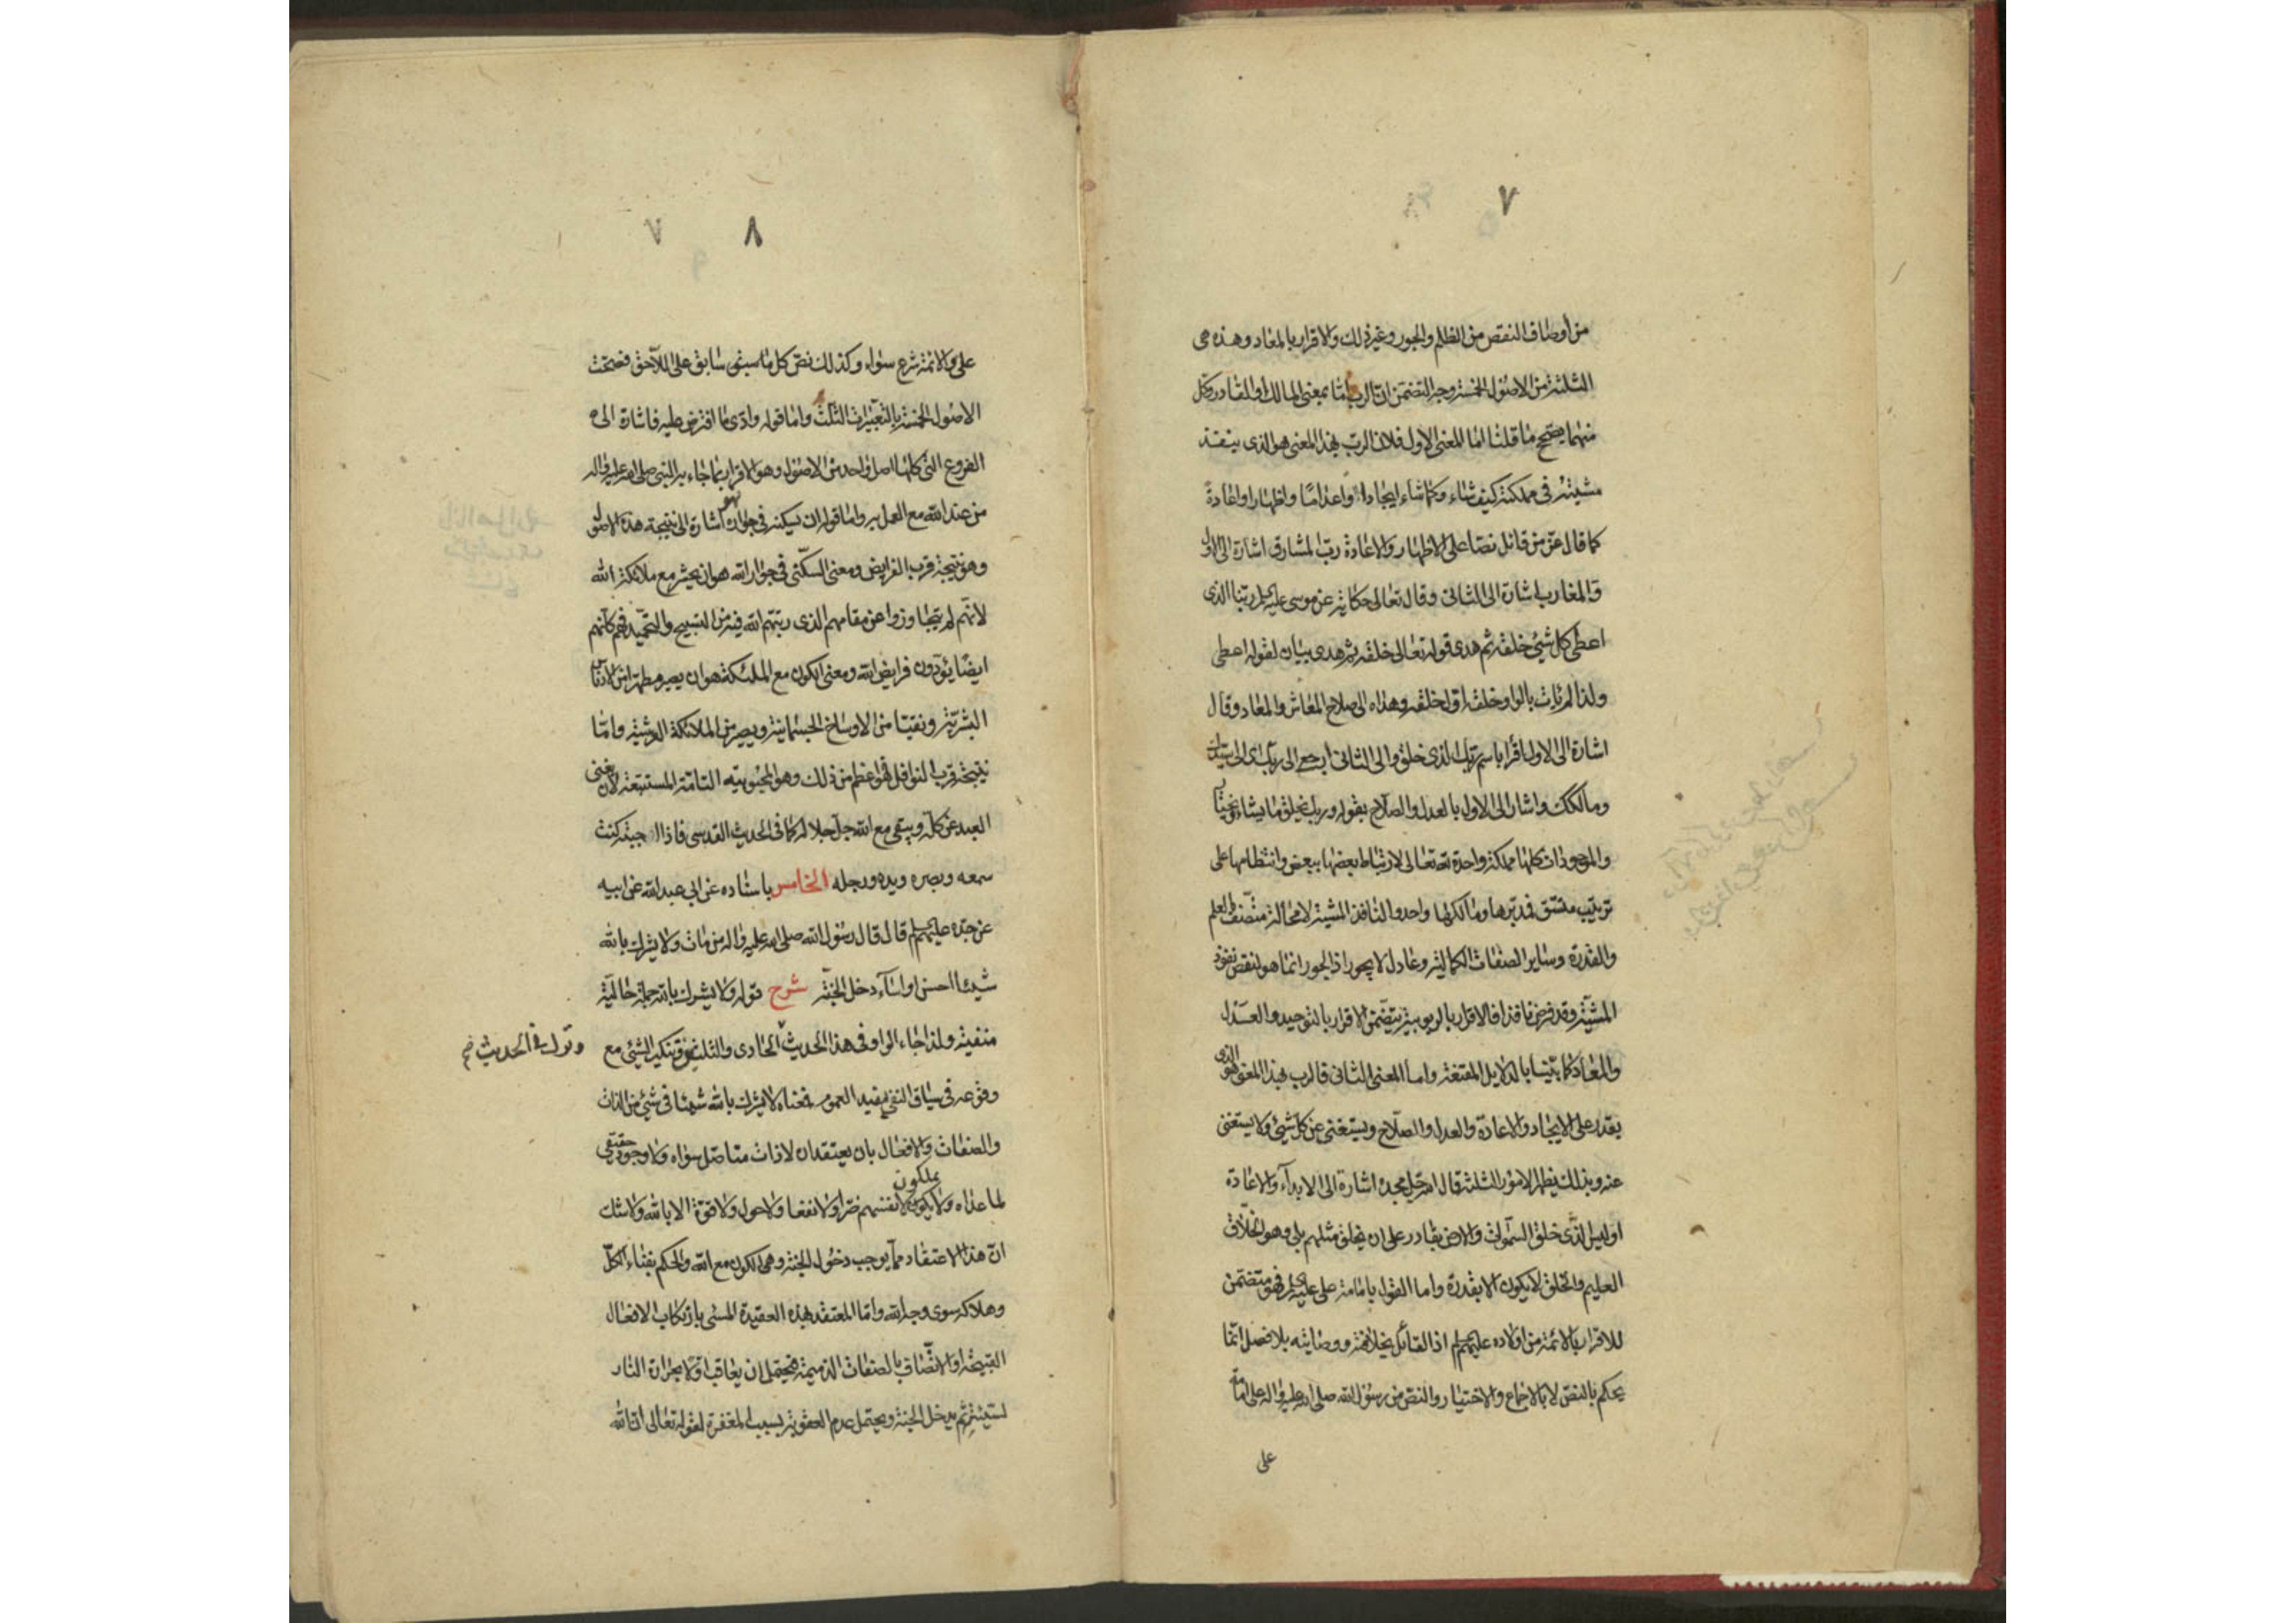 ٧
من أوصاف النقص من الظلم والجور وغير ذلك والاقرار بالمعاد وهذه هى
الثلثة من الاصول الخمسة وجه التضمن ان الرب اما بمعنى المالك او القادر وكل
منهما يصحح ما قلنا اما المعنى الاول فلان الرب بهذا المعنى هو الذى ينفذ
مشيته فى مملكته كيف شاء وكما شاء ايجادا واعداما واظهارا واعادة
كما قال عز من قائل نصا على الاظهار والاعادة رب المشارق اشارة الى الاول
والمغارب اشارة الى الثانى وقال تعالى حكاية عن موسى عليه السلم ربنا الذى
اعطى كل شيئ خلقه ثم هدى قوله تعالى خلقه ثم هدى بيان لقوله اعطى
ولذا لم يات بالواو وخلقه اول خلقه وهداه الى صلاح المعاش والمعاد وقال
اشارة الى الاول اقرأ باسم ربك الذى خلق والى الثانى ارجعى الى ربك اى الى سيدك
ومالكك واشار الى الاول بالعدل والصلاح بقوله وربك يخلق ما يشاء ويختار
والموجودات كلها مملكة واحدة لله تعالى لارتباط بعضها ببعض وانتظامها على
ترتيب متسق فمدبرها ومالكها واحد والنافذ المشية لا محالة متصف بالعلم
والقدرة وساير الصفات الكمالية وعادل لا يجور اذ الجور انما هو لنقص نفوذ
المشية وقد فرض نافذا فالاقرار بالربوبية يتضمن الاقرار بالتوحيد والعدل
والمعاد كما بيتنا بالدلايل المقنعة واما المعنى الثانى فالرب بهذا المعنى هو الذى
يقدر على الايجاد والاعادة والعدل والصلاح ويستغنى عن كل شيئ ولا يستغنى
عنه وبذلك يظهر الامور الثلثة قال الله جل مجده اشارة الى الابدآء والاعادة
اوليس الذى خلق السموات والارض بقادر على ان يخلق مثلهم بلى وهو الخلاق
العليم والخلق لا يكون الا بقدرة واما القول بامامة على عليه السلم فهو متضمن
للاقرار بالائمة من اولاده عليهم السلم اذ القائل بخلافته ووصايته بلا فصل انما
يحكم بالنص لا بالاجماع والاختيار والنص من رسول الله صلى الله عليه واله على امامة
على
٨ ٧
على والائمة شرع سواء وكذلك نص كل منهم سابق على اللاحق فصحت
الاصول الخمسة بالتعبيرات الثلث واما قوله وادى ما افترض عليه فاشارة الى
الفروع التى كلها اصل واحد من الاصول وهو الاقرار بما جاء به النبى صلى الله عليه واله
من عند الله مع العمل به واما قوله ان يسكنه فى جواره فهو اشارة الى نتيجة هذه الاصول
وهو نتيجة قرب الفرايض ومعنى السكنى فى جوار الله هو ان يحشر مع ملائكة الله
لانهم لم يتجاوزوا عن مقامهم الذى ربتهم الله فيه من التسبيح والتحميد فهم كانهم
ايضا يؤدون فرايض الله ومعنى الكون مع الملئكة هو ان يصير مطهرا من الادناس
البشرية ونقيا من الاوساخ الجسمانية ويصير من الملائكة العرشية واما
نتيجة قرب النوافل فهو اعظم من ذلك وهو المحبوبيه التامة المستتبعة لان يفنى
العبد عن كله ويبقى مع الله جل جلاله كما فى الحديث القدسى فاذا احببته كنت
سمعه وبصره ويده ورجله الخامس باسناده عن ابى عبد الله عن ابيه
عن جده عليهم السلم قال قال رسول الله صلى الله عليه واله من مات ولا يشرك بالله
شيئا احسن او اسآء دخل الجنة شرح قوله ولا يشرك بالله جملة حالية
منفية ولذا جاء الواو فى هذا الحديث الحادى والثلثين وتنكير الشيئ مع
وقوله فى الحديث صح
وقوعه فى سياق النفى يفيد العموم فمعناه لا يشرك بالله شيئا فى شيئ من الذات
والصفات والافعال بان يعتقد ان لا ذات متاصل سواه ولا وجود حقيقى
لما عداه ولا يملكون لانفسهم ضرا ولا نفعا ولا حول ولا قوة الا بالله ولا شك
ان هذا الاعتقاد مما يوجب دخول الجنة وهى الكون مع الله والحكم بفناء الكل
وهلاكه سوى وجه الله واما المعتقد بهذه العقيدة المسئى بارتكاب الافعال
القبيحة او الاتصاف بالصفات الذميمة فيحتمل ان يعاقب اولا بحرارة النار
لسيئته ثم يدخل الجنة ويحتمل عدم العقوبة بسبب المغفرة لقوله تعالى ان الله